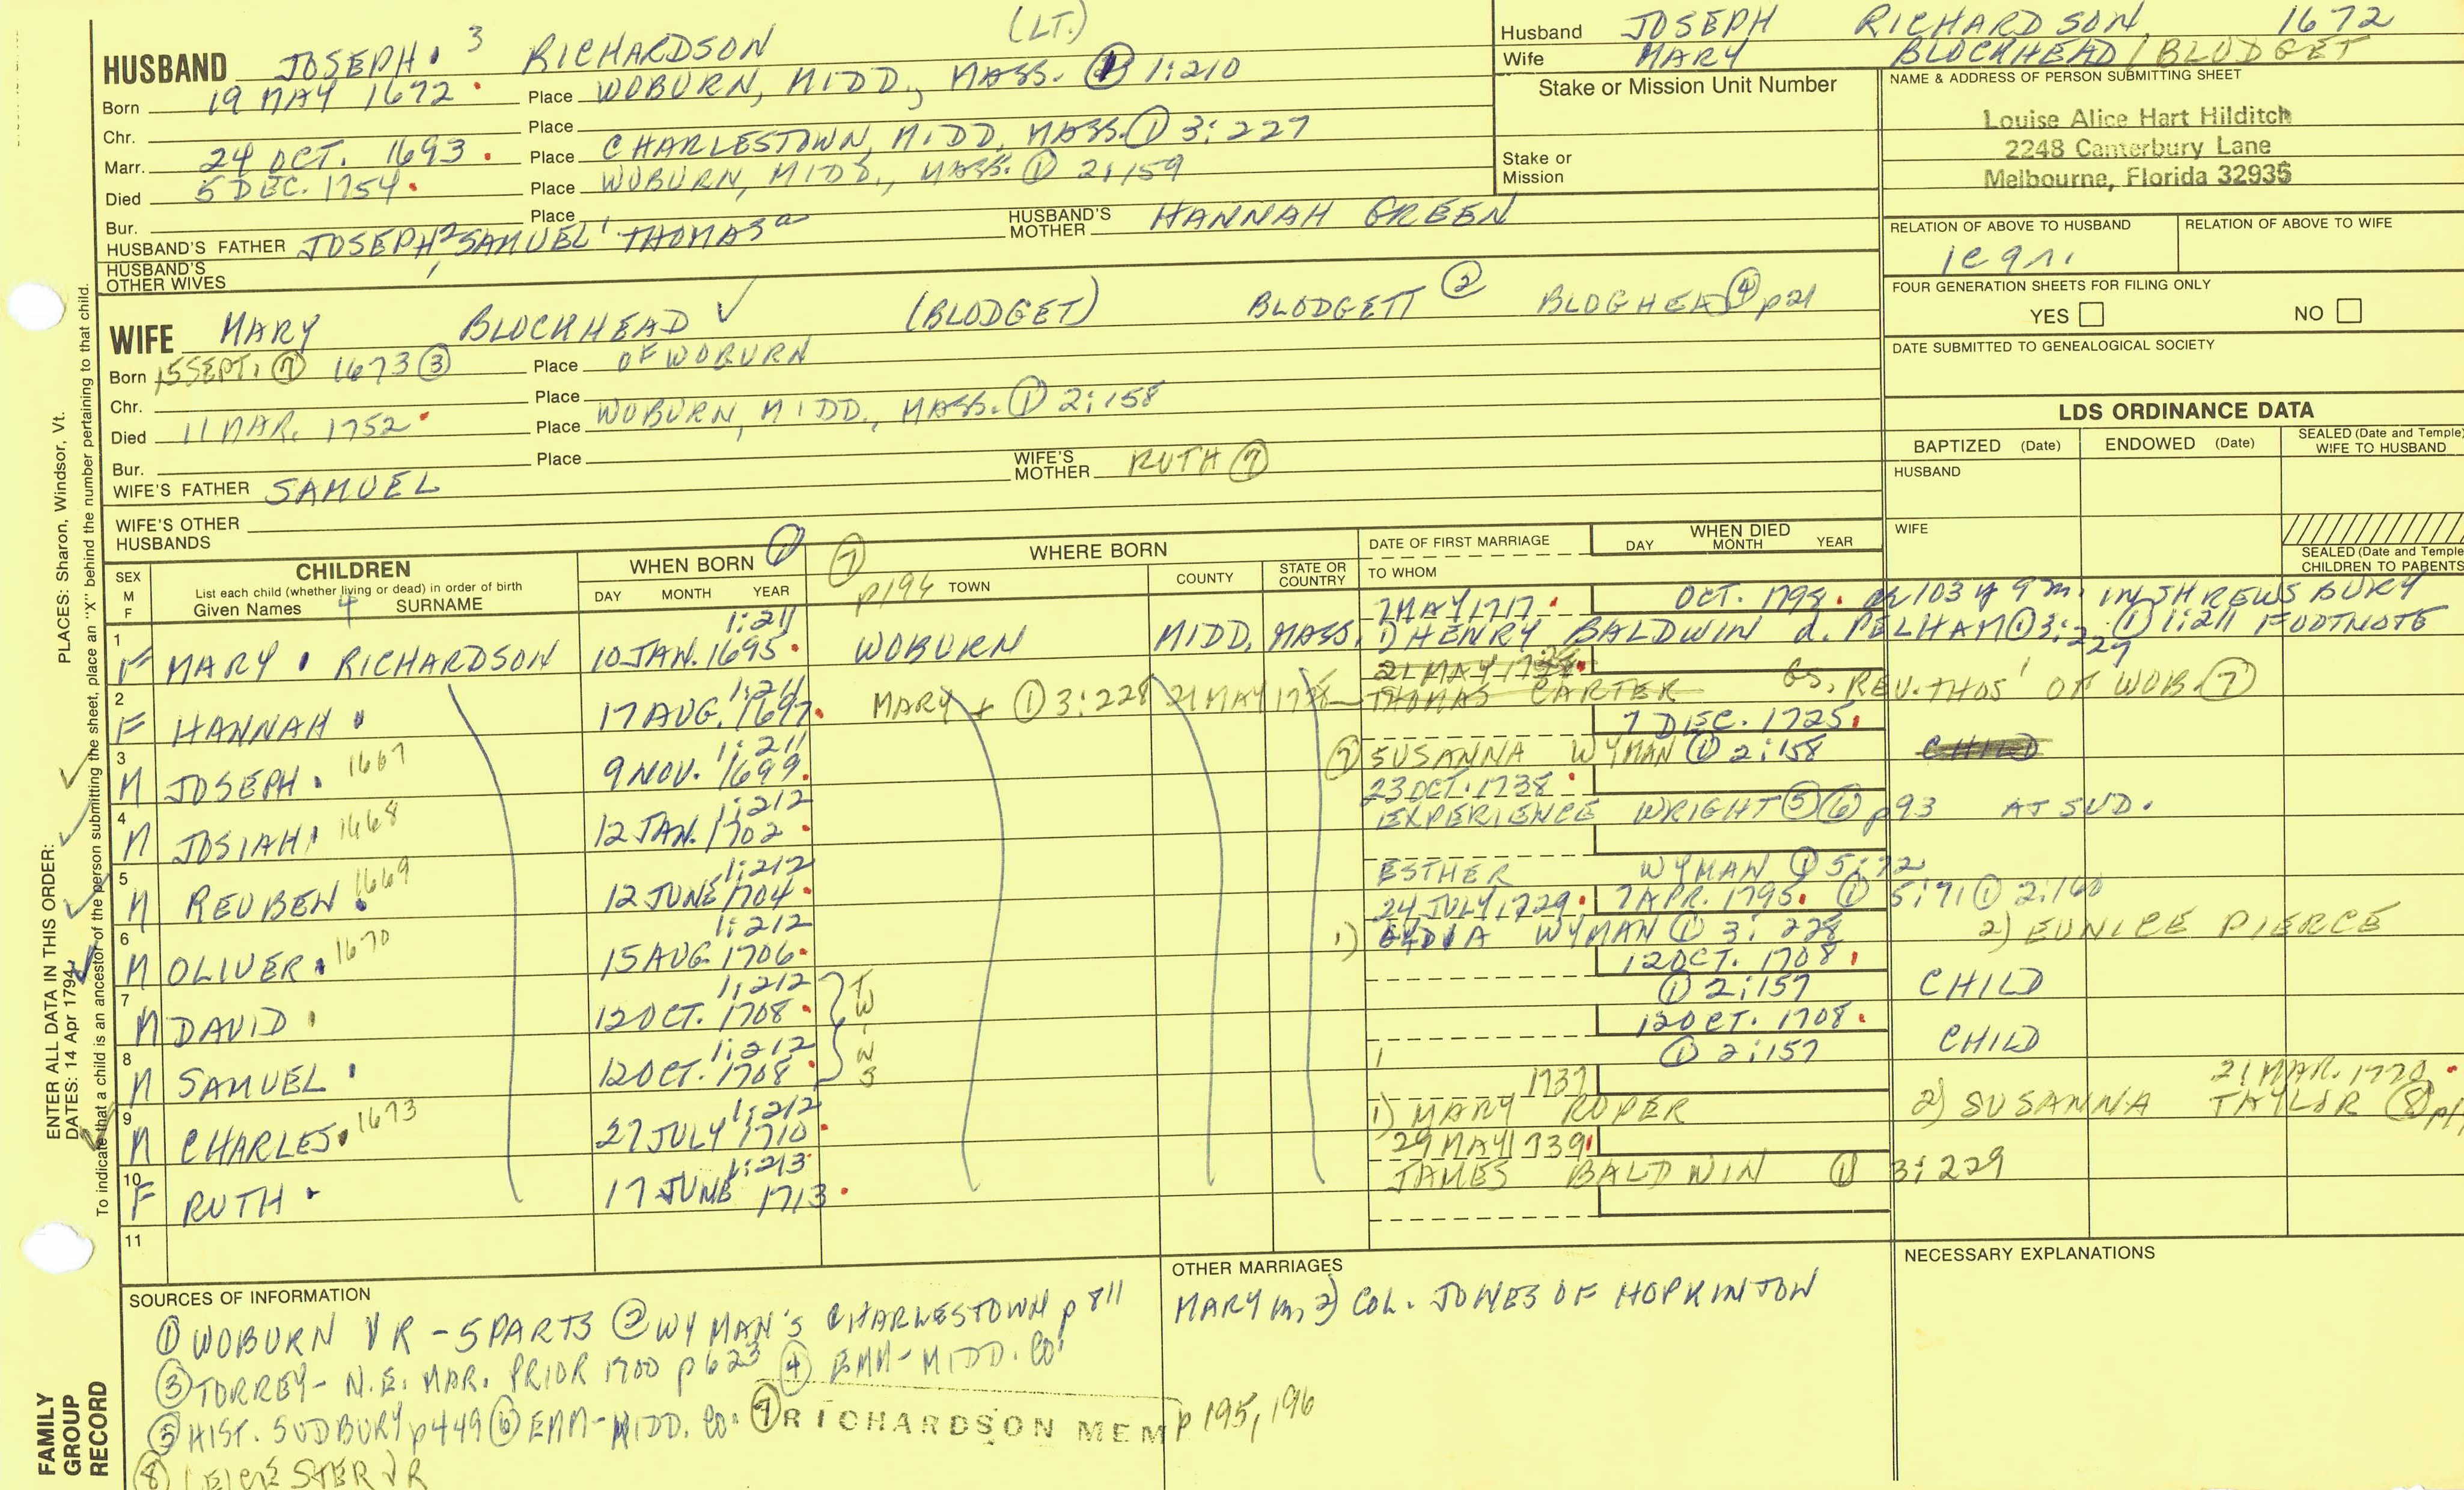 (LT.)
HUSBAND JOSEPH. 3 RICHARDSON
Born 19 MAY 1672. Place WOBURN, MIDD., MASS. ① 1:210
Chr. Place
Marr. 24 OCT. 1693. Place CHARLESTOWN, MIDD, MASS. ① 3:227
Died 5 DEC. 1754. Place WOBURN, MIDD., MASS. ① 2:159
Bur. Place
HUSBAND'S FATHER JOSEPH² SAMUEL¹ THOMASᵃ HUSBAND'S MOTHER HANNAH GREEN
HUSBAND'S OTHER WIVES
Husband JOSEPH RICHARDSON 1672
Wife MARY BLOCKHEAD / BLODGET
Stake or Mission Unit Number
Stake or Mission
NAME & ADDRESS OF PERSON SUBMITTING SHEET
Louise Alice Hart Hilditch
2248 Canterbury Lane
Melbourne, Florida 32935
RELATION OF ABOVE TO HUSBAND RELATION OF ABOVE TO WIFE
FOUR GENERATION SHEETS FOR FILING ONLY
YES NO
DATE SUBMITTED TO GENEALOGICAL SOCIETY
WIFE MARY BLOCKHEAD ✓ (BLODGET) BLODGETT ② BLOGHEAD ④ p21
Born 15 SEPT. ⑦ 1673 ③ Place OF WOBURN
Chr. Place
Died 11 MAR. 1752. Place WOBURN, MIDD., MASS. ① 2:158
Bur. Place
WIFE'S FATHER SAMUEL WIFE'S MOTHER RUTH ⑦
WIFE'S OTHER HUSBANDS
LDS ORDINANCE DATA
BAPTIZED (Date) ENDOWED (Date) SEALED (Date and Temple) WIFE TO HUSBAND
HUSBAND
WIFE
SEALED (Date and Temple) CHILDREN TO PARENTS
SEX M F
CHILDREN
List each child (whether living or dead) in order of birth
Given Names 4 SURNAME
WHEN BORN ①
DAY MONTH YEAR
⑦ p194
WHERE BORN
TOWN COUNTY STATE OR COUNTRY
DATE OF FIRST MARRIAGE
TO WHOM
WHEN DIED
DAY MONTH YEAR
1 F MARY. RICHARDSON 1:211 10 JAN. 1695. WOBURN MIDD. MASS. 7 MAY 1717. 1) HENRY BALDWIN d. PELHAM ① 3:227 OCT. 1798. 103 y 9 m. IN SHREWSBURY ① 1:211 FOOTNOTE
2 F HANNAH. 1:211 17 AUG. 1697. MARY + ① 3:228 21 MAY 1728 21 MAY 1728. THOMAS CARTER GS. REV. THOS¹ OF WOB. ⑦
3 M JOSEPH. 1667 1:211 9 NOV. 1699. ⑦ SUSANNA WYMAN ① 2:158 7 DEC. 1725. CHILD
4 M JOSIAH. 1668 1:212 12 JAN. 1702. 23 OCT. 1738. EXPERIENCE WRIGHT ⑤ ⑥ p93 AT SUD.
5 M REUBEN. 1669 1:212 12 JUNE 1704. ESTHER WYMAN ① 5:72
6 M OLIVER. 1670 1:212 15 AUG. 1706. 24 JULY 1729. 7 APR. 1795. ① 5:71 ① 2:160 1) LYDIA WYMAN ① 3:228 2) EUNICE PIERCE
7 M DAVID. 1:212 12 OCT. 1708. TWINS 12 OCT. 1708. ① 2:157 CHILD
8 M SAMUEL. 1:212 12 OCT. 1708. 12 OCT. 1708. ① 2:157 CHILD
9 M CHARLES. 1673 1:212 27 JULY 1710. 1737 1) MARY ROPER 2) SUSANNA TAYLOR ⑧ 21 MAR. 1770.
10 F RUTH. 1:213 17 JUNE 1713. 29 MAY 1739. JAMES BALDWIN ① 3:229
11
SOURCES OF INFORMATION
① WOBURN VR - 5 PARTS ② WYMAN'S CHARLESTOWN p 811
③ TORREY - N.E. MAR. PRIOR 1700 p 623 ④ EMM - MIDD. CO.
⑤ HIST. SUDBURY p449 ⑥ EMM - MIDD. CO. ⑦ RICHARDSON MEM p 195, 196
⑧ LEICESTER VR
OTHER MARRIAGES
MARY m. 2) COL. JONES OF HOPKINTON
NECESSARY EXPLANATIONS
FAMILY GROUP RECORD
ENTER ALL DATA IN THIS ORDER:
DATES: 14 Apr 1794
PLACES: Sharon, Windsor, Vt.
To indicate that a child is an ancestor of the person submitting the sheet, place an "X" behind the number pertaining to that child.